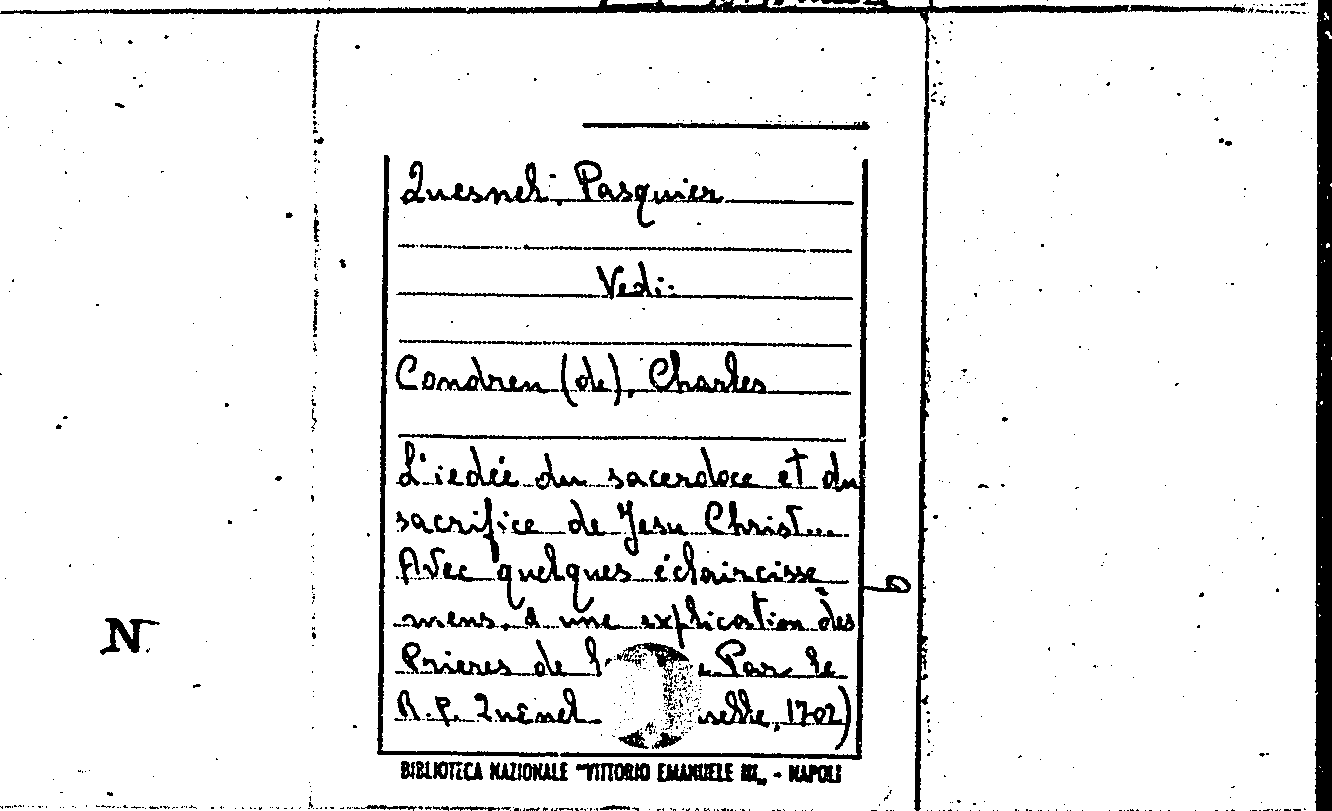 Quesnel, Pasquier
Vedi:
Condren (de), Charles
L'iedée du sacerdoce et du
sacrifice de Jesu Christ...
Avec quelques éclaircisse
mens, & une explication des
Prieres de Par le
R.P. Quênel 1702)
BIBLIOTECA NAZIONALE "VITTORIO EMANUELE III„ - NAPOLI
6
N